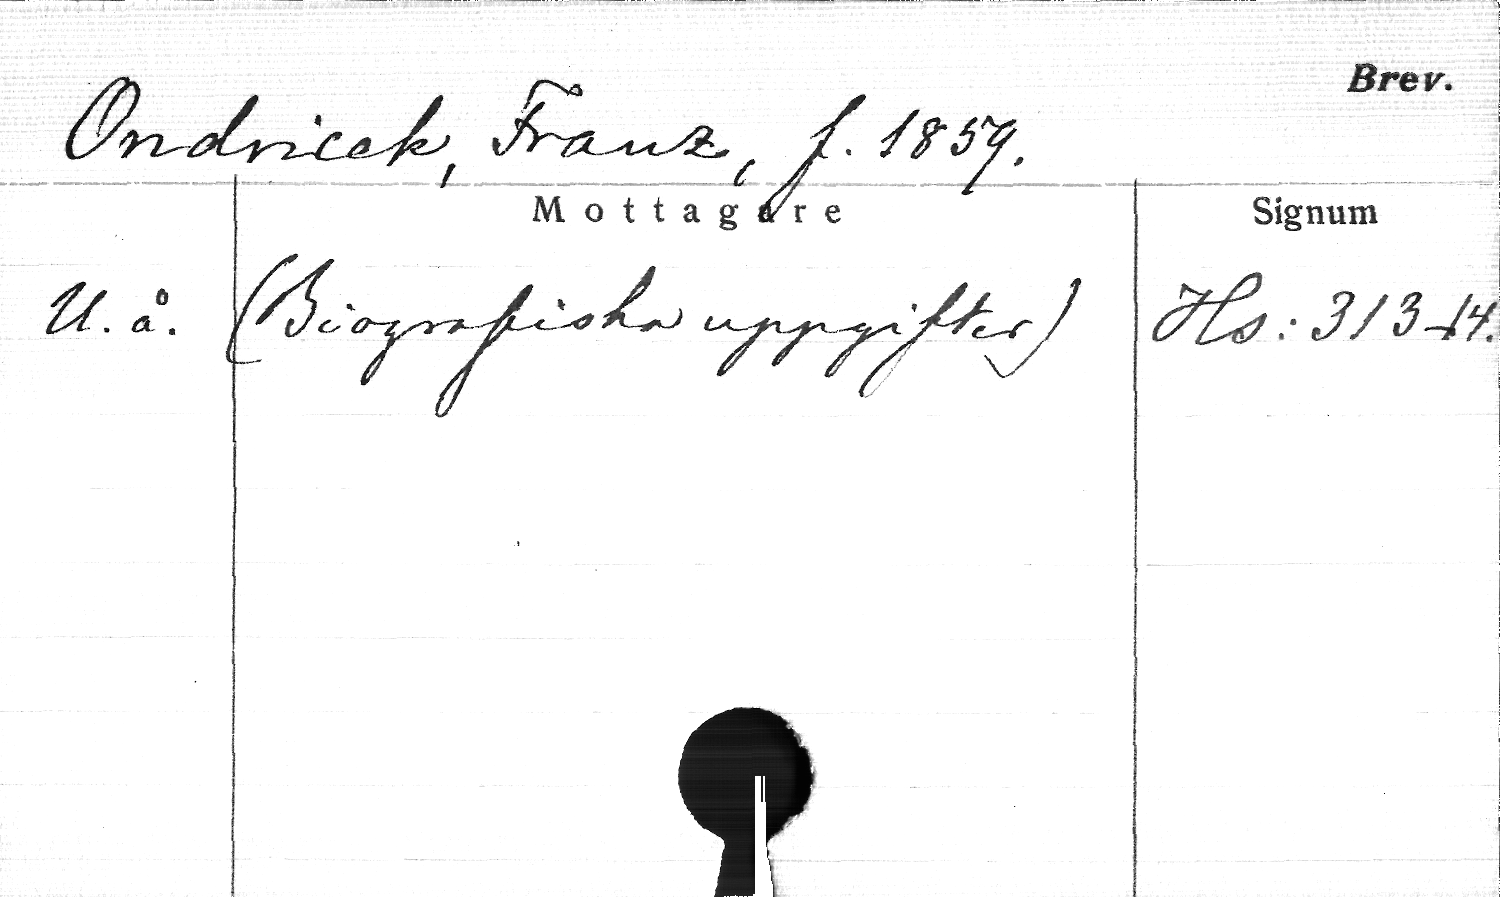 Brev.
Ondricek, Franz, f. 1859.
Mottagare Signum
U. å. (Biografiska uppgifter) Hs: 313-14.